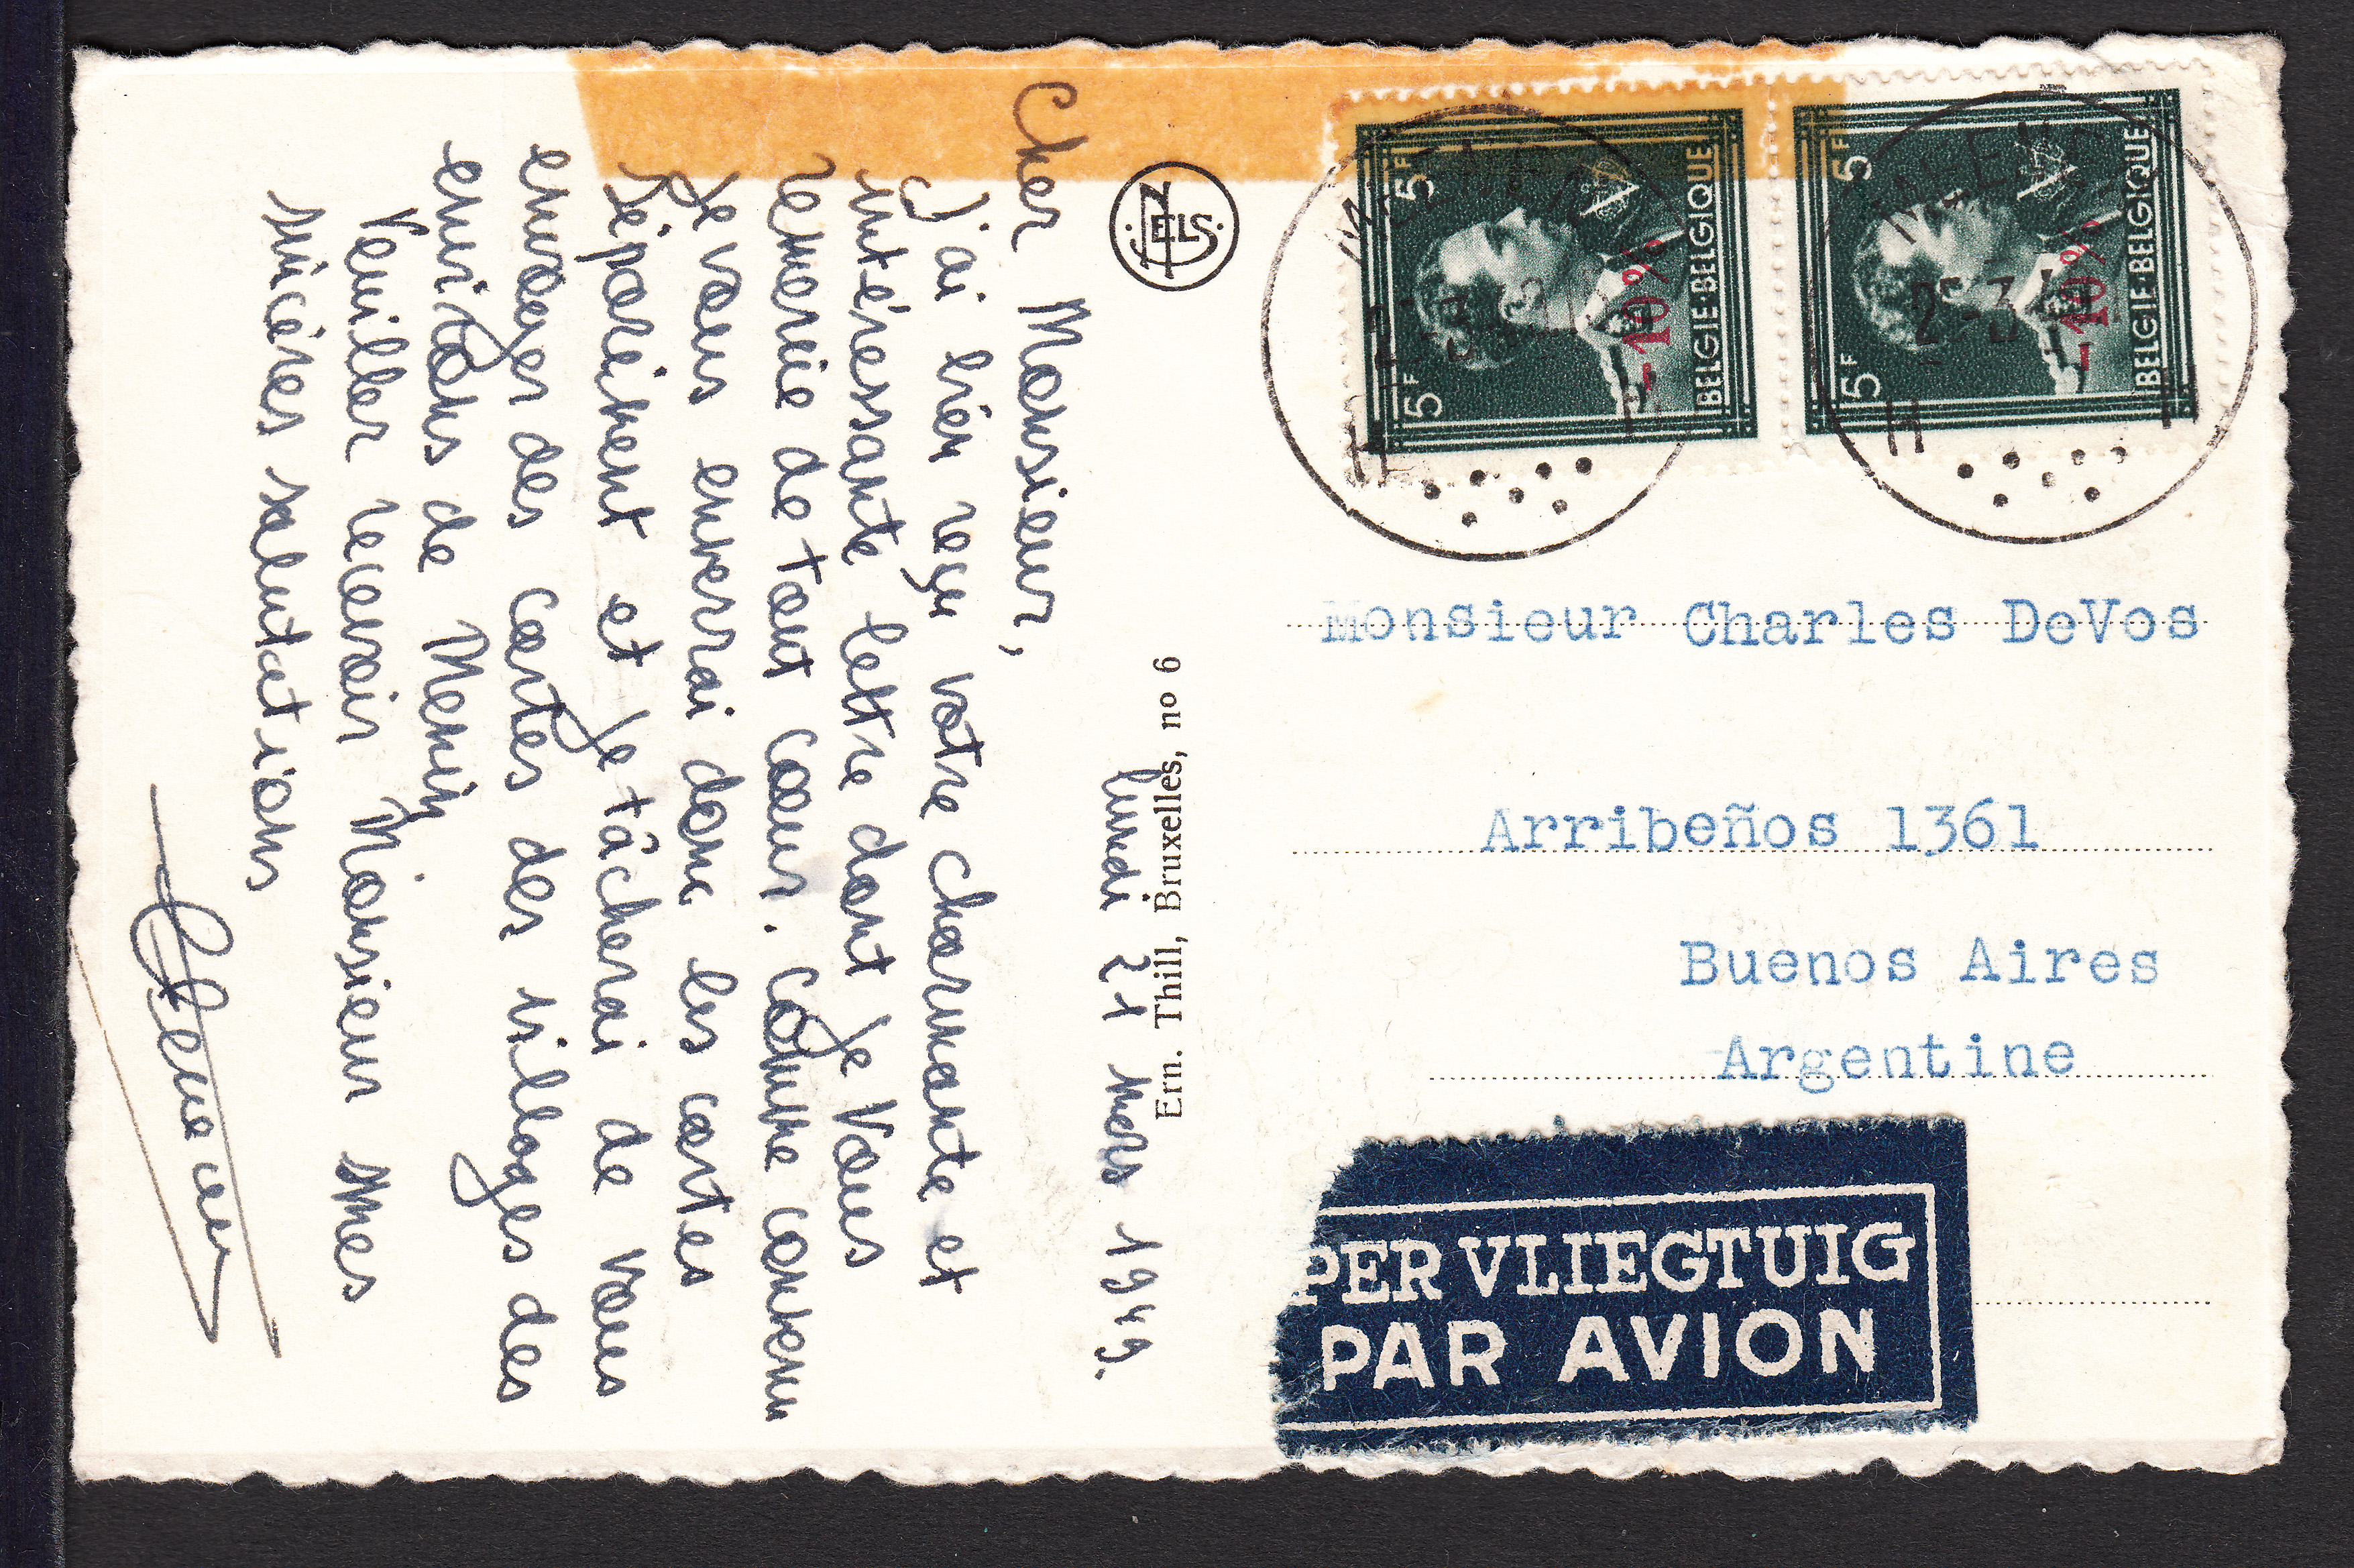 lundi 21 mars 1949.
Cher Monsieur,
J'ai bien reçu votre charmante et
intéressante lettre dont je vous
remercie de tout cœur. Comme convenu
je vous enverrai donc les cartes
séparément et je tâcherai de vous
envoyer des cartes des villages des
environs de Menin
Veuiller recevoir Monsieur mes
sincères salutations
NELS
Ern. Thill, Bruxelles, no 6
5F 5F
-10%
BELGIE·BELGIQUE
5F 5F
-10%
BELGIE·BELGIQUE
Monsieur Charles DeVos
Arribeños 1361
Buenos Aires
Argentine
PER VLIEGTUIG
PAR AVION